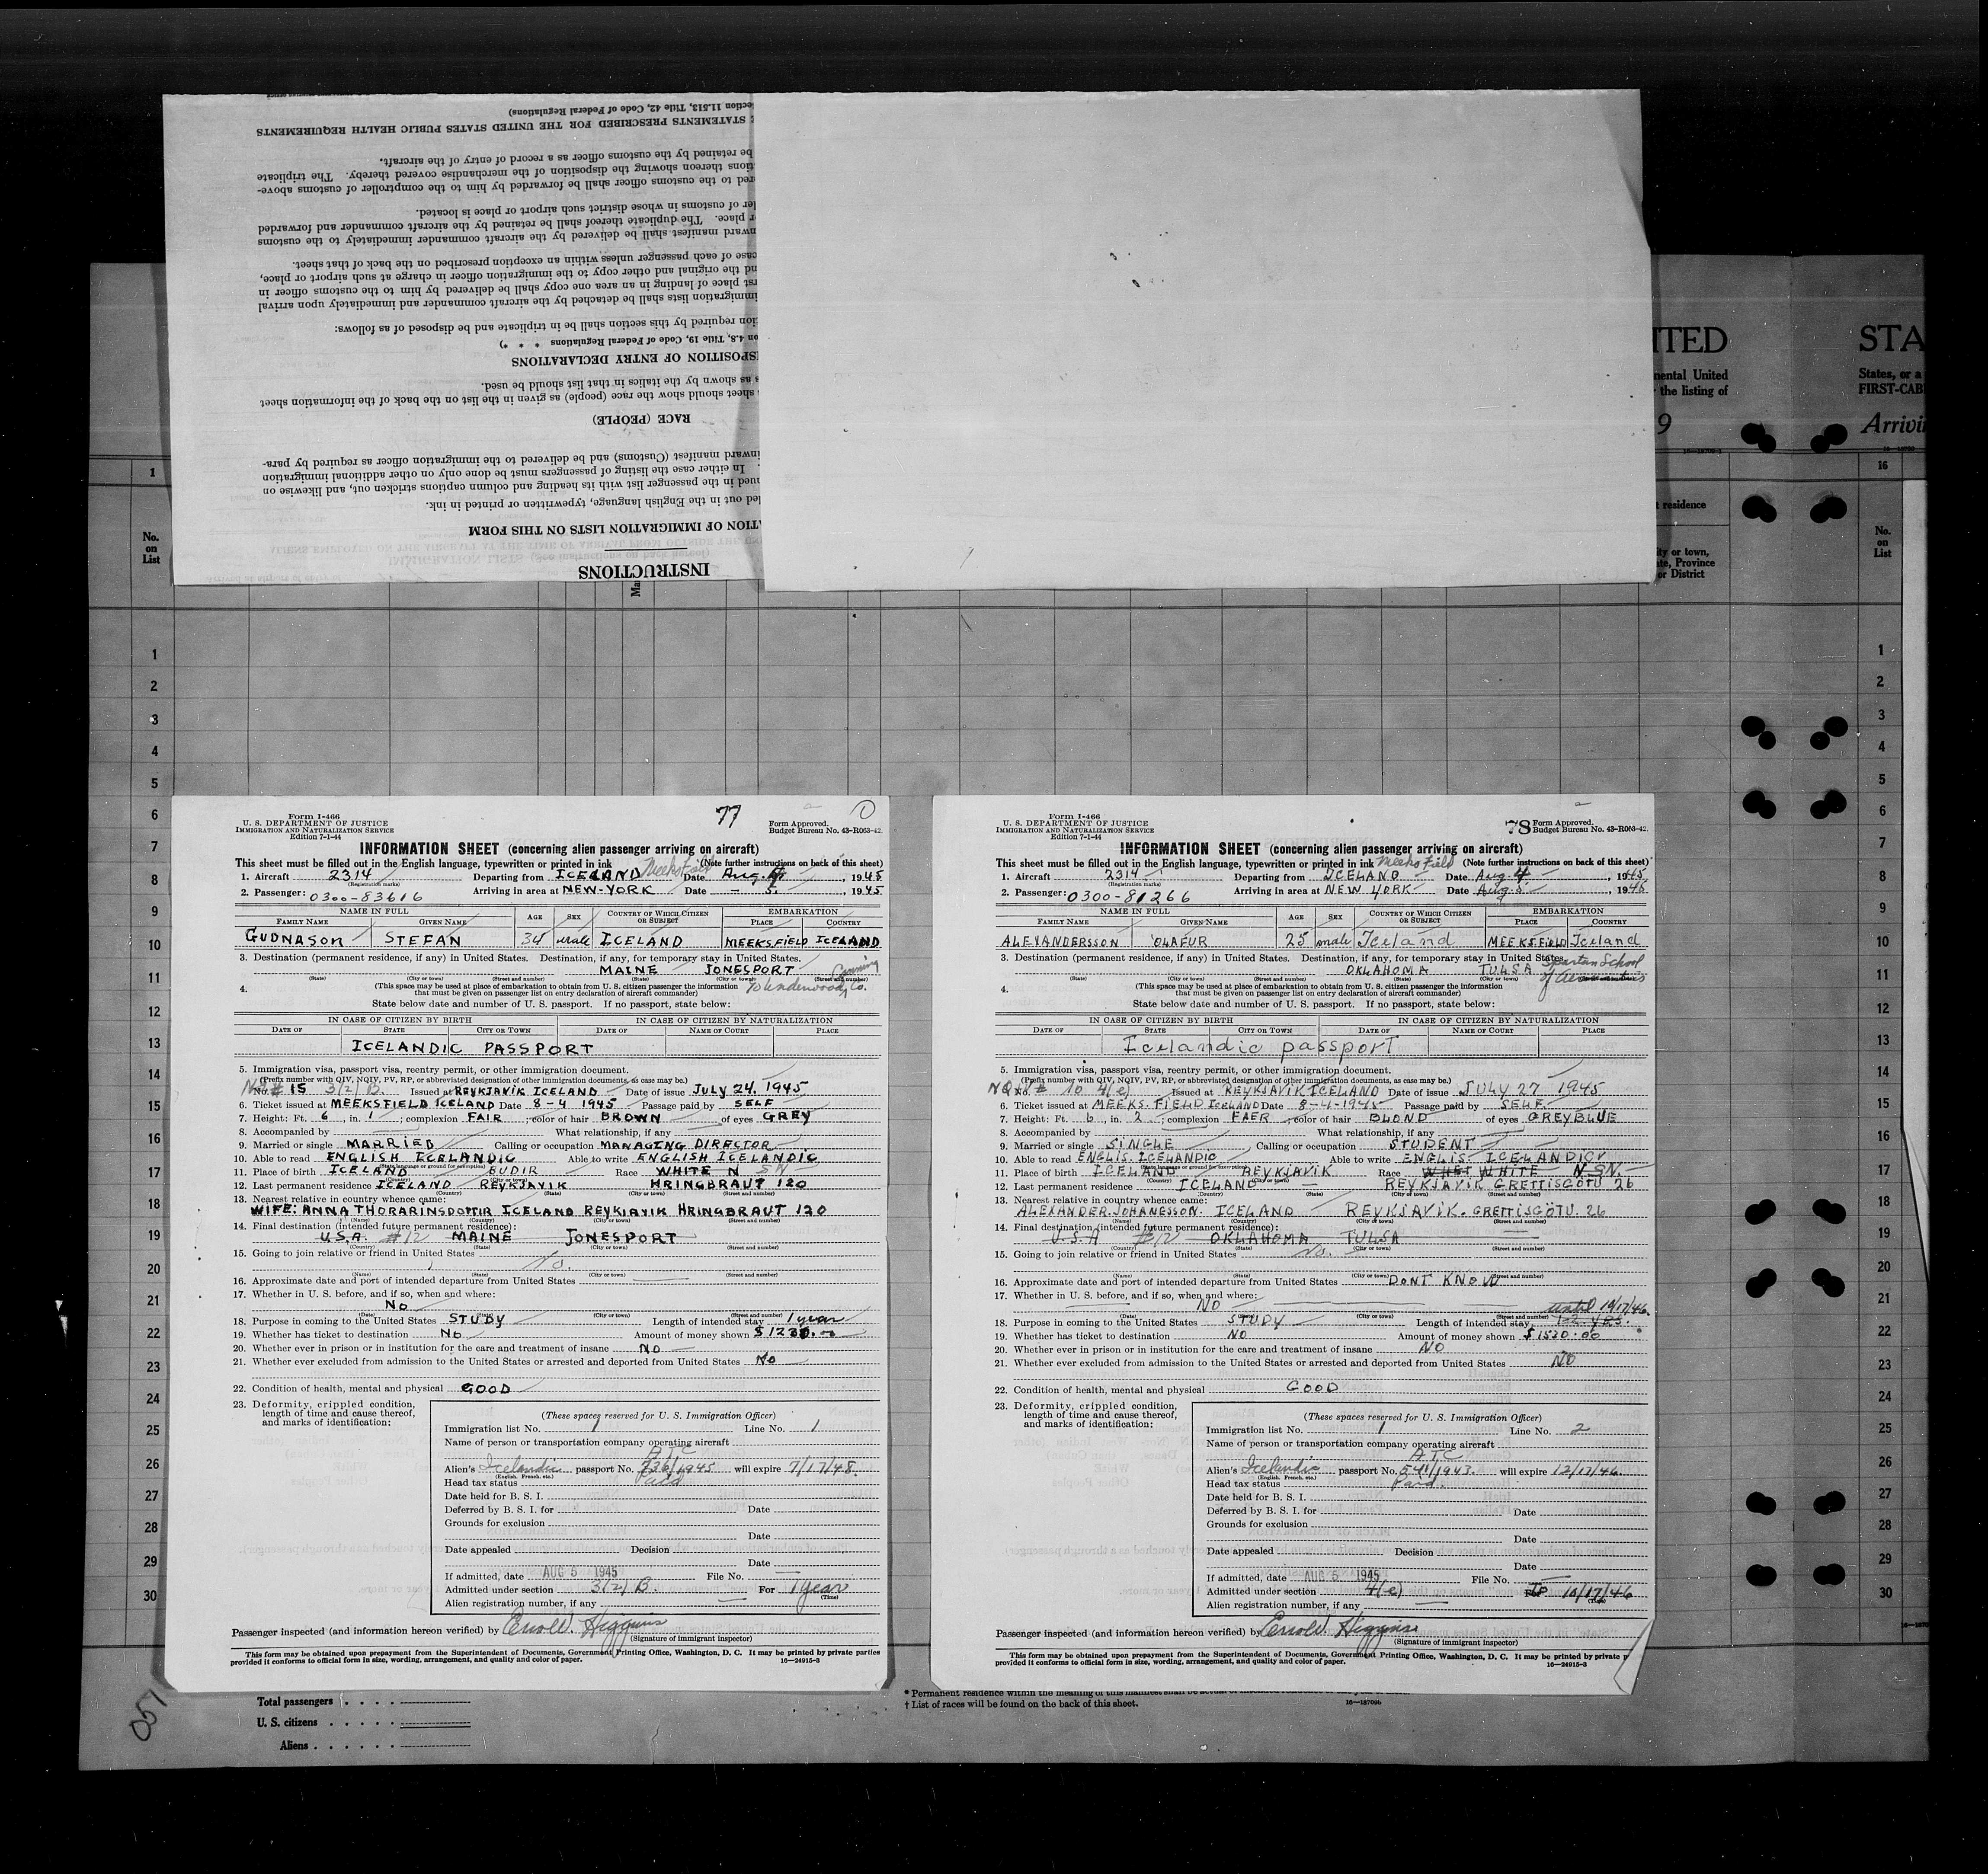 Section 11.513, Title 42, Code of Federal Regulations)
STATEMENTS PRESCRIBED FOR THE UNITED STATES PUBLIC HEALTH REQUIREMENTS
be retained by the customs officer as a record of entry of the aircraft.
tions thereon showing the disposition of the merchandise covered thereby. The triplicate
red to the customs officer shall be forwarded by him to the comptroller of customs above-
ler of customs in whose district such airport or place is located.
r place. The duplicate thereof shall be retained by the aircraft commander and forwarded
nward manifest shall be delivered by the aircraft commander immediately to the customs
case of each passenger unless within an exception prescribed on the back of that sheet.
nd the original and other copy to the immigration officer in charge at such airport or place,
rst place of landing in an area one copy shall be delivered by him to the customs officer in
immigration lists shall be detached by the aircraft commander and immediately upon arrival
tion required by this section shall be in triplicate and be disposed of as follows:
on 4.8, Title 19, Code of Federal Regulations * * *)
SPOSITION OF ENTRY DECLARATIONS
s as shown by the italics in that list should be used.
s sheet should show the race (people) as given in the list on the back of the information sheet
RACE (PEOPLE)
inward manifest (Customs) and be delivered to the immigration officer as required by para-
. In either case the listing of passengers must be done only on other additional immigration
nued in the passenger list with its heading and column captions stricken out, and likewise on
led out in the English language, typewritten or printed in ink.
ATION OF IMMIGRATION LISTS ON THIS FORM
INSTRUCTIONS
ITED
nental United
the listing of
9
residence
ity or town,
ate, Province
or District
STA
States, or a
FIRST-CAB
Arrivi
1
16
No.
on
List
No.
on
List
Ma
1
2
3
4
5
6
7
8
9
10
11
12
13
14
15
16
17
18
19
20
21
22
23
24
25
26
27
28
29
30
77 1
Form I-466
U. S. DEPARTMENT OF JUSTICE
IMMIGRATION AND NATURALIZATION SERVICE
Edition 7-1-44
Form Approved.
Budget Bureau No. 43-R063-42.
INFORMATION SHEET (concerning alien passenger arriving on aircraft)
This sheet must be filled out in the English language, typewritten or printed in ink (Note further instructions on back of this sheet)
1. Aircraft 2314 Departing from ICELAND Meeks Field Date Aug. 4, 1945
(Registration marks)
2. Passenger: 0300-83616 Arriving in area at NEW-YORK Date - 5. , 1945
NAME IN FULL AGE SEX COUNTRY OF WHICH CITIZEN OR SUBJECT EMBARKATION
FAMILY NAME GIVEN NAME PLACE COUNTRY
GUDNASON STEFAN 34 male ICELAND MEEKSFIELD ICELAND
3. Destination (permanent residence, if any) in United States. Destination, if any, for temporary stay in United States.
MAINE JONESPORT
(State) (City or town) (Street and number) (State) (City or town) (Street and number)
% Underwood Canning Co.
4. (This space may be used at place of embarkation to obtain from U. S. citizen passenger the information
that must be given on passenger list on entry declaration of aircraft commander)
State below date and number of U. S. passport. If no passport, state below:
IN CASE OF CITIZEN BY BIRTH IN CASE OF CITIZEN BY NATURALIZATION
DATE OF STATE CITY OR TOWN DATE OF NAME OF COURT PLACE
ICELANDIC PASSPORT
5. Immigration visa, passport visa, reentry permit, or other immigration document.
(Prefix number with QIV, NQIV, PV, RP, or abbreviated designation of other immigration documents, as case may be.)
No. # 15 3(2) B. Issued at REYKJAVIK ICELAND Date of issue JULY 24. 1945
6. Ticket issued at MEEKSFIELD ICELAND Date 8-4 1945 Passage paid by SELF
7. Height: Ft. 6, in. 1; complexion FAIR; color of hair BROWN of eyes GREY
8. Accompanied by What relationship, if any
9. Married or single MARRIED Calling or occupation MANAGING DIRECTOR
10. Able to read ENGLISH ICELANDIC Able to write ENGLISH ICELANDIC
11. Place of birth ICELAND BUDIR Race WHITE N SN
12. Last permanent residence ICELAND REYKJAVIK HRINGBRAUT 120
13. Nearest relative in country whence came:
WIFE: ANNA THORARINSDOTTIR ICELAND REYKJAVIK HRINGBRAUT 120
(Name) (Country) (City or town) (Street and number)
14. Final destination (intended future permanent residence):
U.S.A. #12 MAINE JONESPORT
(Country) (State) (City or town) (Street and number)
15. Going to join relative or friend in United States
No.
(Name) (State) (City or town) (Street and number)
16. Approximate date and port of intended departure from United States
17. Whether in U. S. before, and if so, when and where:
NO
(Date) (State) (City or town) (Street and number)
18. Purpose in coming to the United States STUDY Length of intended stay 1 year
19. Whether has ticket to destination NO Amount of money shown
20. Whether ever in prison or in institution for the care and treatment of insane NO
21. Whether ever excluded from admission to the United States or arrested and deported from United States NO
22. Condition of health, mental and physical GOOD
23. Deformity, crippled condition,
length of time and cause thereof,
and marks of identification:
(These spaces reserved for U. S. Immigration Officer)
Immigration list No. 1 Line No. 1
Name of person or transportation company operating aircraft
ATC
Alien's Icelandic passport No. 736/1945 will expire 7/17/48.
(English, French, etc.)
Head tax status Paid
Date held for B. S. I.
Deferred by B. S. I. for Date
Grounds for exclusion
Date
Date appealed Decision
Date
If admitted, date AUG 5 1945 File No.
Admitted under section 3(2) B. For 1 year
(Time)
Alien registration number, if any
Passenger inspected (and information hereon verified) by Errol W. Higgins
(Signature of immigrant inspector)
This form may be obtained upon prepayment from the Superintendent of Documents, Government Printing Office, Washington, D. C. It may be printed by private parties
provided it conforms to official form in size, wording, arrangement, and quality and color of paper. 16-24915-3
78
Form I-466
U. S. DEPARTMENT OF JUSTICE
IMMIGRATION AND NATURALIZATION SERVICE
Edition 7-1-44
Form Approved.
Budget Bureau No. 43-R063-42.
INFORMATION SHEET (concerning alien passenger arriving on aircraft)
This sheet must be filled out in the English language, typewritten or printed in ink Meeks Field (Note further instructions on back of this sheet)
1. Aircraft 2314 Departing from ICELAND Date Aug. 4, 1945
(Registration marks)
2. Passenger: 0300-81266 Arriving in area at NEW YORK Date Aug. 5, 1945
NAME IN FULL AGE SEX COUNTRY OF WHICH CITIZEN OR SUBJECT EMBARKATION
FAMILY NAME GIVEN NAME PLACE COUNTRY
ALEXANDERSSON OLAFUR 25 male Iceland MEEKSFIELD Iceland
3. Destination (permanent residence, if any) in United States. Destination, if any, for temporary stay in United States.
OKLAHOMA TULSA Spartan School of
(State) (City or town) (Street and number) (State) (City or town)
4. (This space may be used at place of embarkation to obtain from U. S. citizen passenger the information
that must be given on passenger list on entry declaration of aircraft commander)
State below date and number of U. S. passport. If no passport, state below:
IN CASE OF CITIZEN BY BIRTH IN CASE OF CITIZEN BY NATURALIZATION
DATE OF STATE CITY OR TOWN DATE OF NAME OF COURT PLACE
Icelandic passport
5. Immigration visa, passport visa, reentry permit, or other immigration document.
(Prefix number with QIV, NQIV, PV, RP, or abbreviated designation of other immigration documents, as case may be.)
No. # 10 4(e) Issued at REYKJAVIK ICELAND Date of issue JULY 27 1945
6. Ticket issued at MEEKS. FIELD ICELAND Date 8-4-1945 Passage paid by SELF
7. Height: Ft. 6, in. 2; complexion FAER; color of hair BLOND of eyes GREYBLUE
8. Accompanied by What relationship, if any
9. Married or single SINGLE Calling or occupation STUDENT
10. Able to read ENGLIS. ICELANDIC Able to write ENGLIS. ICELANDIC
11. Place of birth ICELAND REYKJAVIK Race WHITE N SN.
12. Last permanent residence ICELAND REYKJAVIK GRETTISGÖTU 26
13. Nearest relative in country whence came:
ALEXANDER JOHANESSON. ICELAND REYKJAVIK. GRETTISGÖTU. 26
(Name) (Country) (City or town) (Street and number)
14. Final destination (intended future permanent residence):
U.S.A #12 OKLAHOMA TULSA
(Country) (State) (City or town) (Street and number)
15. Going to join relative or friend in United States No.
(Name) (State) (City or town) (Street and number)
16. Approximate date and port of intended departure from United States DONT KNOW
17. Whether in U. S. before, and if so, when and where:
NO until 10/17/46.
(Date) (State) (City or town) (Street and number)
18. Purpose in coming to the United States STUDY Length of intended stay
19. Whether has ticket to destination NO Amount of money shown $1520.00
20. Whether ever in prison or in institution for the care and treatment of insane NO
21. Whether ever excluded from admission to the United States or arrested and deported from United States NO
22. Condition of health, mental and physical GOOD
23. Deformity, crippled condition,
length of time and cause thereof,
and marks of identification:
(These spaces reserved for U. S. Immigration Officer)
Immigration list No. 1 Line No. 2
Name of person or transportation company operating aircraft
ATC
Alien's Icelandic passport No. 541/1943. will expire 12/17/46.
(English, French, etc.)
Head tax status Paid.
Date held for B. S. I.
Deferred by B. S. I. for Date
Grounds for exclusion
Date
Date appealed Decision
Date
If admitted, date AUG 5 1945 File No.
Admitted under section 4(e) To 10/17/46
(Time)
Alien registration number, if any
Passenger inspected (and information hereon verified) by Errol W. Higgins
(Signature of immigrant inspector)
This form may be obtained upon prepayment from the Superintendent of Documents, Government Printing Office, Washington, D. C. It may be printed by private p
provided it conforms to official form in size, wording, arrangement, and quality and color of paper. 16-24915-3
1
2
3
4
5
6
7
8
9
10
11
12
13
14
15
16
17
18
19
20
21
22
23
24
25
26
27
28
29
30
051
Total passengers
U. S. citizens
Aliens
* Permanent residence within the meaning of this manifest shall be actual
† List of races will be found on the back of this sheet. 16-18709b